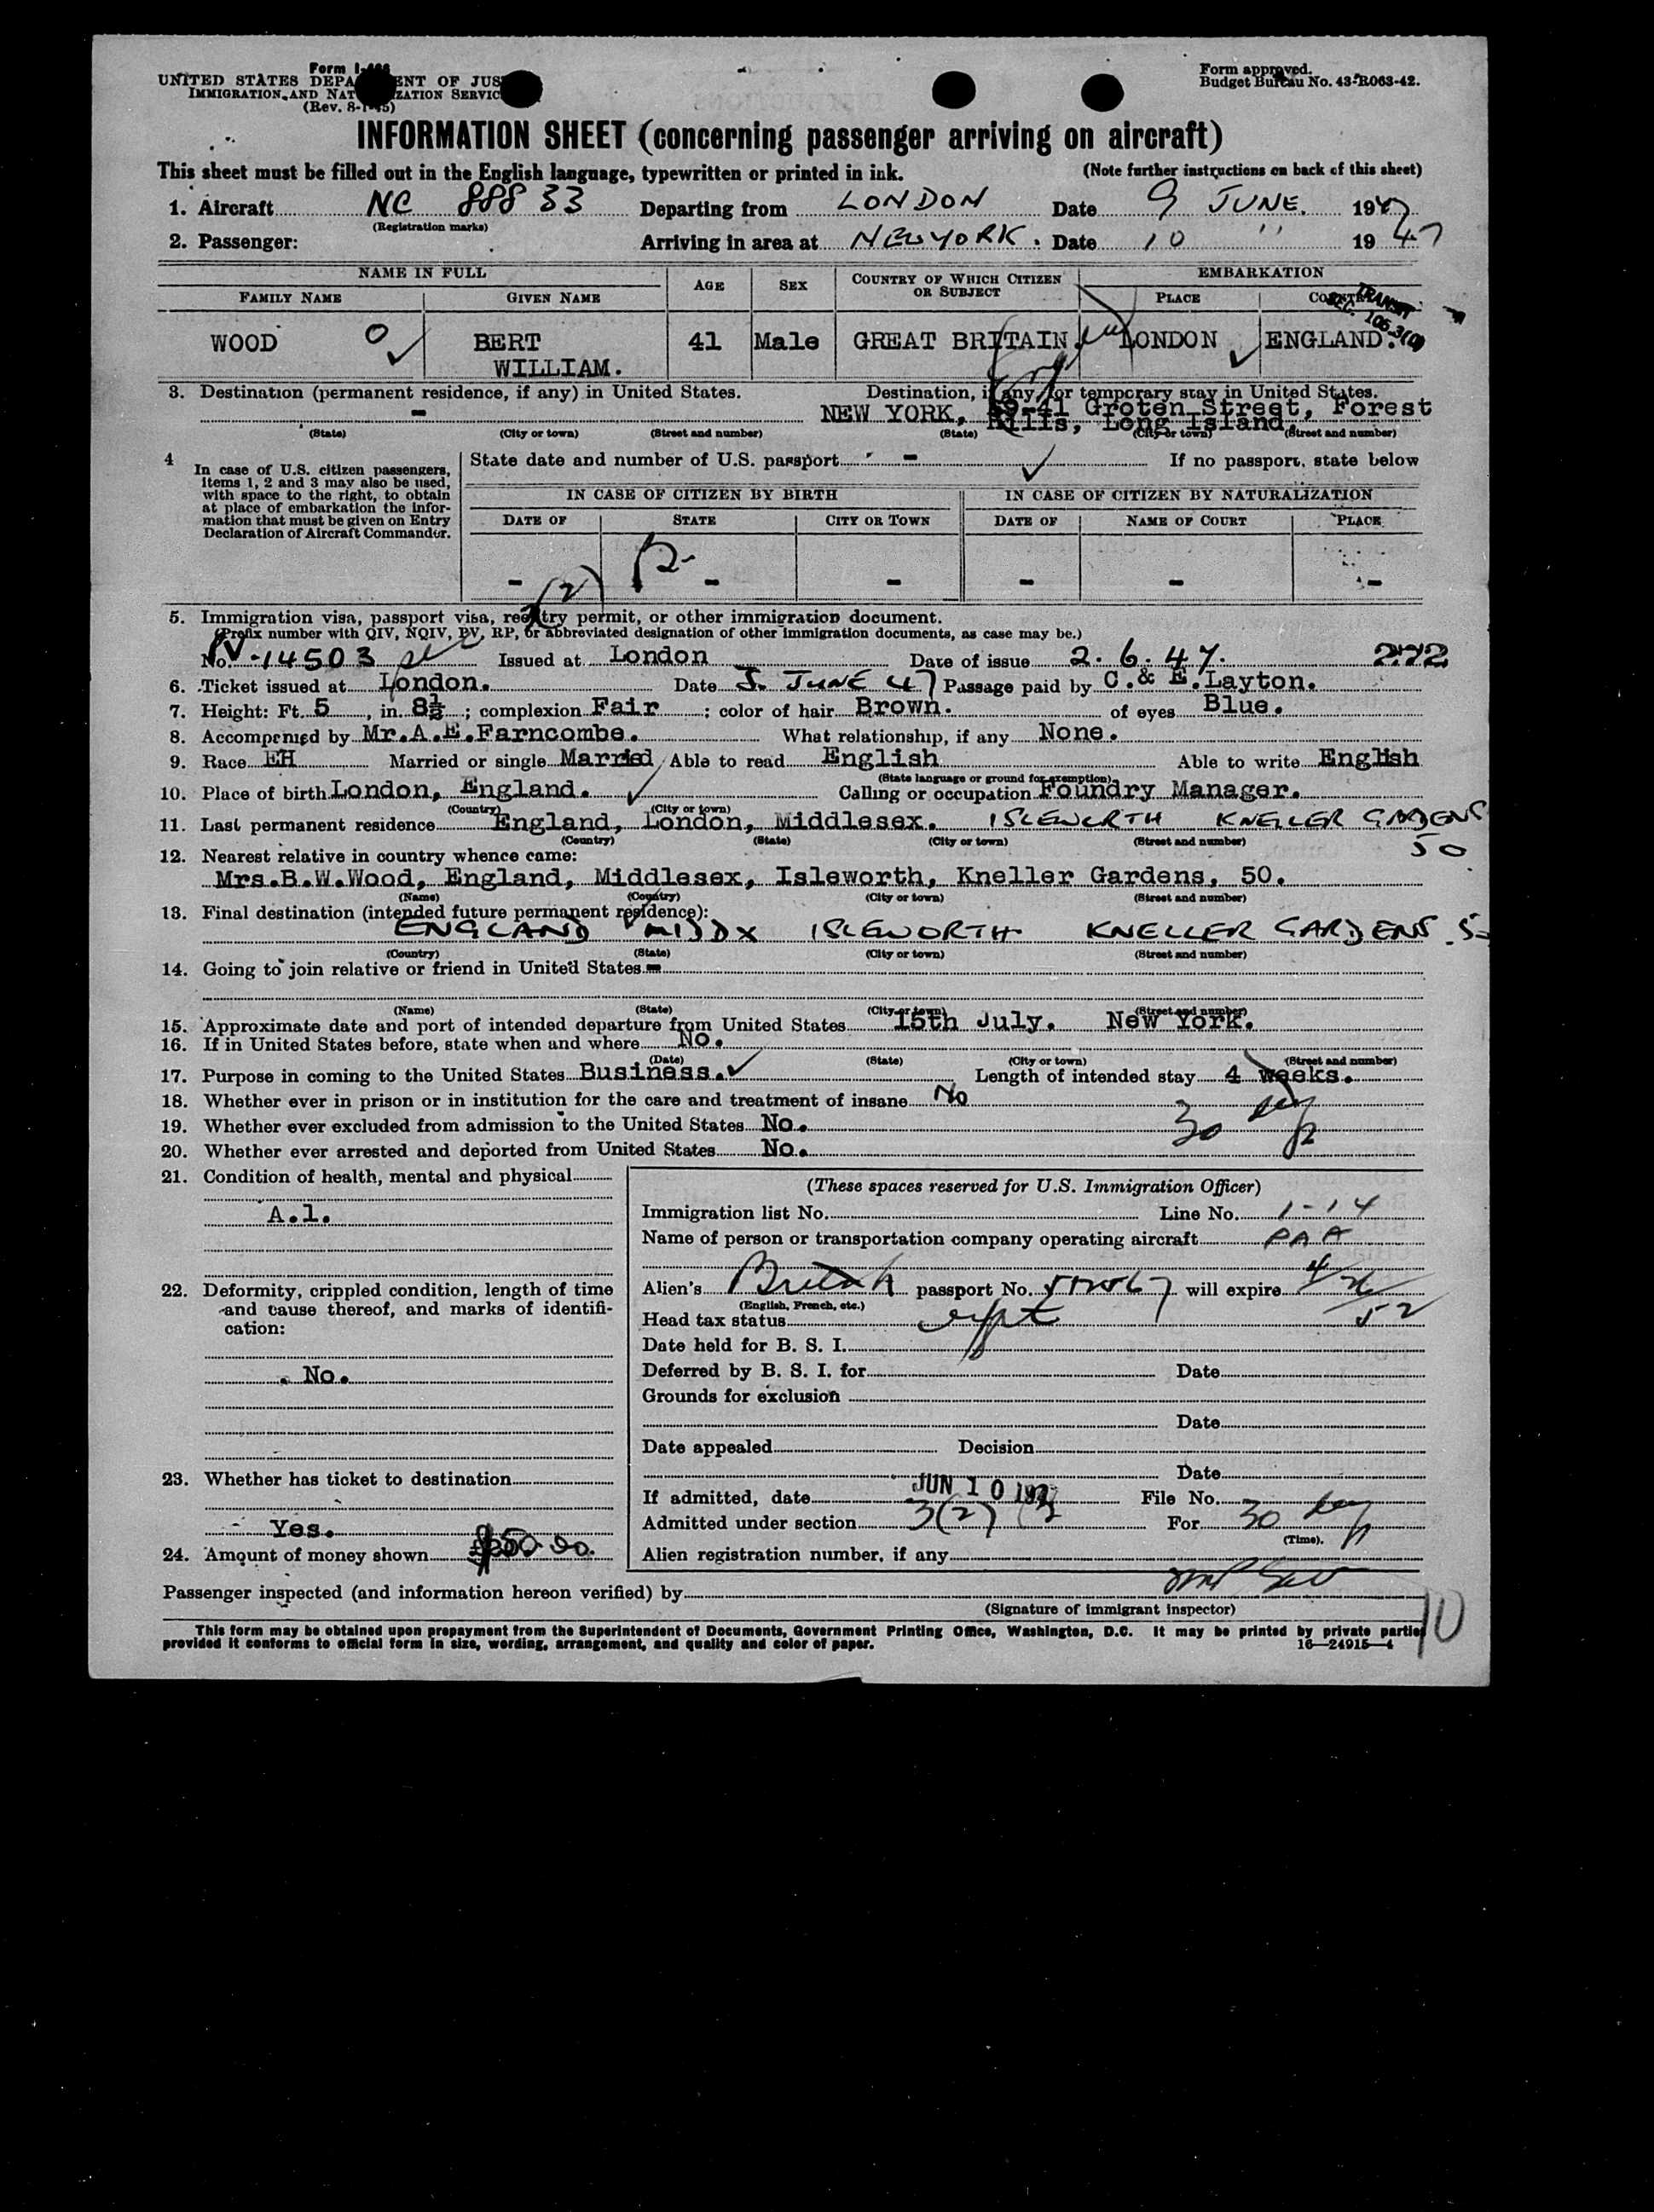 Form I-466
UNITED STATES DEPARTMENT OF JUSTICE
IMMIGRATION AND NATURALIZATION SERVICE
(Rev. 8-1-45)
Form approved.
Budget Bureau No. 43-R063-42.
INFORMATION SHEET (concerning passenger arriving on aircraft)
This sheet must be filled out in the English language, typewritten or printed in ink. (Note further instructions on back of this sheet)
1. Aircraft NC 88833 Departing from LONDON Date 9 JUNE. 1947
(Registration marks)
2. Passenger: Arriving in area at NEW YORK. Date 10 " 1947
NAME IN FULL AGE SEX COUNTRY OF WHICH CITIZEN OR SUBJECT EMBARKATION
FAMILY NAME GIVEN NAME PLACE COUNTRY
TRANSIT
SEC.
WOOD O BERT 41 Male GREAT BRITAIN. LONDON ENGLAND.
WILLIAM.
3. Destination (permanent residence, if any) in United States. Destination, if any, for temporary stay in United States.
- NEW YORK, Groten Street, Forest
Hills, Long Island.
(State) (City or town) (Street and number) (State) (City or town) (Street and number)
4 In case of U.S. citizen passengers, items 1, 2 and 3 may also be used, with space to the right, to obtain at place of embarkation the information that must be given on Entry Declaration of Aircraft Commander.
State date and number of U.S. passport - If no passport, state below
IN CASE OF CITIZEN BY BIRTH IN CASE OF CITIZEN BY NATURALIZATION
DATE OF STATE CITY OR TOWN DATE OF NAME OF COURT PLACE
- - - - - -
5. Immigration visa, passport visa, reentry permit, or other immigration document.
(Prefix number with QIV, NQIV, PV, RP, or abbreviated designation of other immigration documents, as case may be.)
No. PV-14503 Issued at London Date of issue 2. 6. 47. 272
6. Ticket issued at London. Date 5. JUNE 47 Passage paid by C.& E.Layton.
7. Height: Ft. 5, in. 8½; complexion Fair; color of hair Brown. of eyes Blue.
8. Accompanied by Mr.A.E.Farncombe. What relationship, if any None.
9. Race EH Married or single Married Able to read English Able to write English
(State language or ground for exemption)
10. Place of birth London, England. Calling or occupation Foundry Manager.
(Country) (City or town)
11. Last permanent residence England, London, Middlesex. ISLEWORTH KNELLER GARDENS
50
(Country) (State) (City or town) (Street and number)
12. Nearest relative in country whence came:
Mrs.B.W.Wood, England, Middlesex, Isleworth, Kneller Gardens, 50.
(Name) (Country) (City or town) (Street and number)
13. Final destination (intended future permanent residence):
ENGLAND MIDDX ISLEWORTH KNELLER GARDENS
(Country) (State) (City or town) (Street and number)
14. Going to join relative or friend in United States -
(Name) (State) (City or town) (Street and number)
15. Approximate date and port of intended departure from United States 15th July. New York.
16. If in United States before, state when and where No.
(Date) (State) (City or town) (Street and number)
17. Purpose in coming to the United States Business. Length of intended stay 4 weeks.
18. Whether ever in prison or in institution for the care and treatment of insane No
19. Whether ever excluded from admission to the United States No. 30
20. Whether ever arrested and deported from United States No.
21. Condition of health, mental and physical
A.1.
22. Deformity, crippled condition, length of time and cause thereof, and marks of identification:
No.
23. Whether has ticket to destination
Yes.
24. Amount of money shown
(These spaces reserved for U.S. Immigration Officer)
Immigration list No. Line No. 1-14
Name of person or transportation company operating aircraft PAA
Alien's British passport No. will expire 4/26/52
(English, French, etc.)
Head tax status
Date held for B. S. I.
Deferred by B. S. I. for Date
Grounds for exclusion
Date
Date appealed Decision
Date
If admitted, date JUN 10 File No.
Admitted under section 3(2) For 30
(Time)
Alien registration number, if any
Passenger inspected (and information hereon verified) by
(Signature of immigrant inspector)
10
This form may be obtained upon prepayment from the Superintendent of Documents, Government Printing Office, Washington, D.C. It may be printed by private parties
provided it conforms to official form in size, wording, arrangement, and quality and color of paper. 16—24915—4